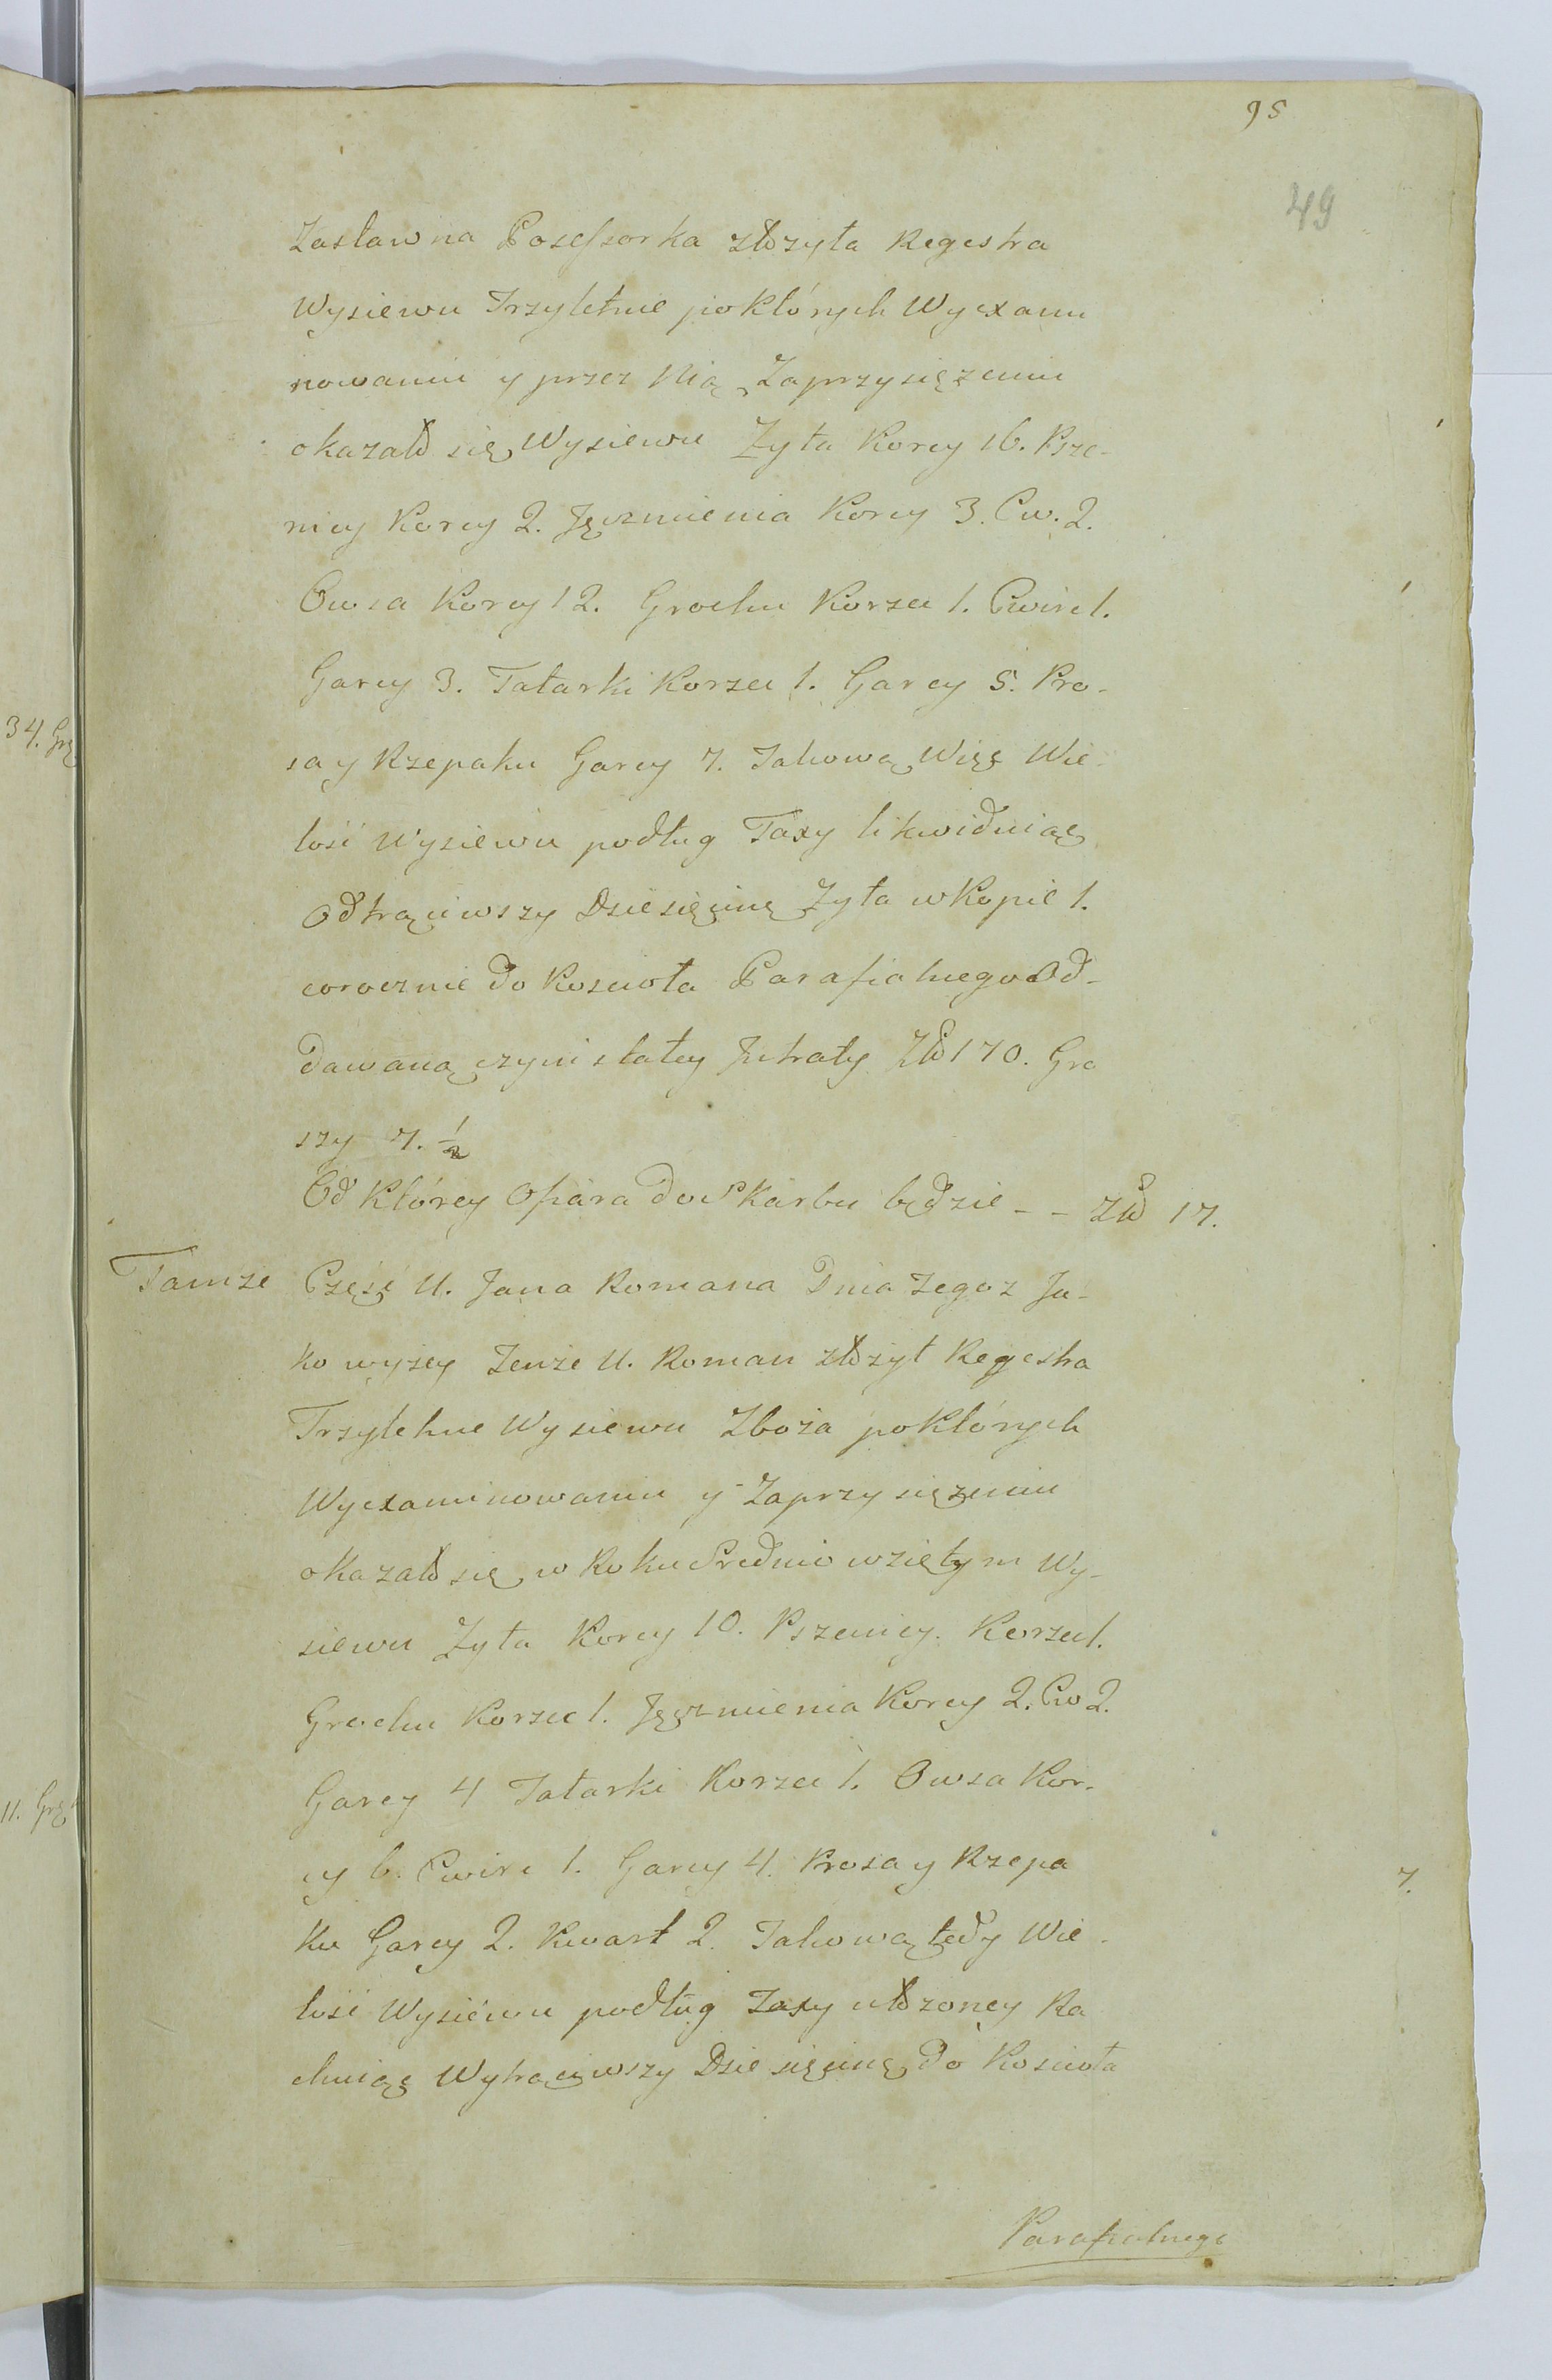 95
49
Zastawna Posessorka złożyła Regestra
Wysiewu Trzyletnie po których Wyexami
nowaniu y przez Nią Zaprzysiężeniu
okazało się Wysiewu Zyta Korcy 16. Psze-
nicy Korcy 2. Jęczmienia Korcy 3. Cw. 2.
Owsa Korcy 12. Grochu Korzec 1. Cwierc 1.
Garcy 3. Tatarki Korzec 1. Garcy 5. Pro-
sa y Rzepaku Garcy 7. Takową Więc Wie-
lość Wysiewu podług Taxy likwiduiąc
Odtrąciwszy Dziesięcinę Zyta w Kopie 1.
corocznie do Koscioła Parafialnego Od-
dawaną czyni stałey Jntraty Zło 170. Gro
szy 7. 1/2
Od Którey Ofiara do Skarbu będzie - - Zło 17.
Tamże Część U. Jana Romana Dnia tegoz Ja-
ko wyżey Tenże U. Roman złożył Regestra
Trzyletnie Wysiewu Zboża po których
Wyexaminowaniu y Zaprzysiężeniu
okazało się w Roku Srednio wziętym Wy-
siewu Zyta Korcy 10. Pszenicy. Korzec 1.
Grochu Korzec 1. Jęczmienia Korcy 2. Cw 2.
Garcy 4 Tatarki Korzec 1. Owsa Kor-
cy 6. Cwierc 1. Garcy 4. Prosa y Rzepa
ku Garcy 2. Kwart 2. Takową tedy Wie-
lość Wysiewu podług Taxy ułożoney Ra
chuiąc Wytrąciwszy Dziesięcinę do Koscioła
Parafialnego
34. Grę
11. Grę
7.